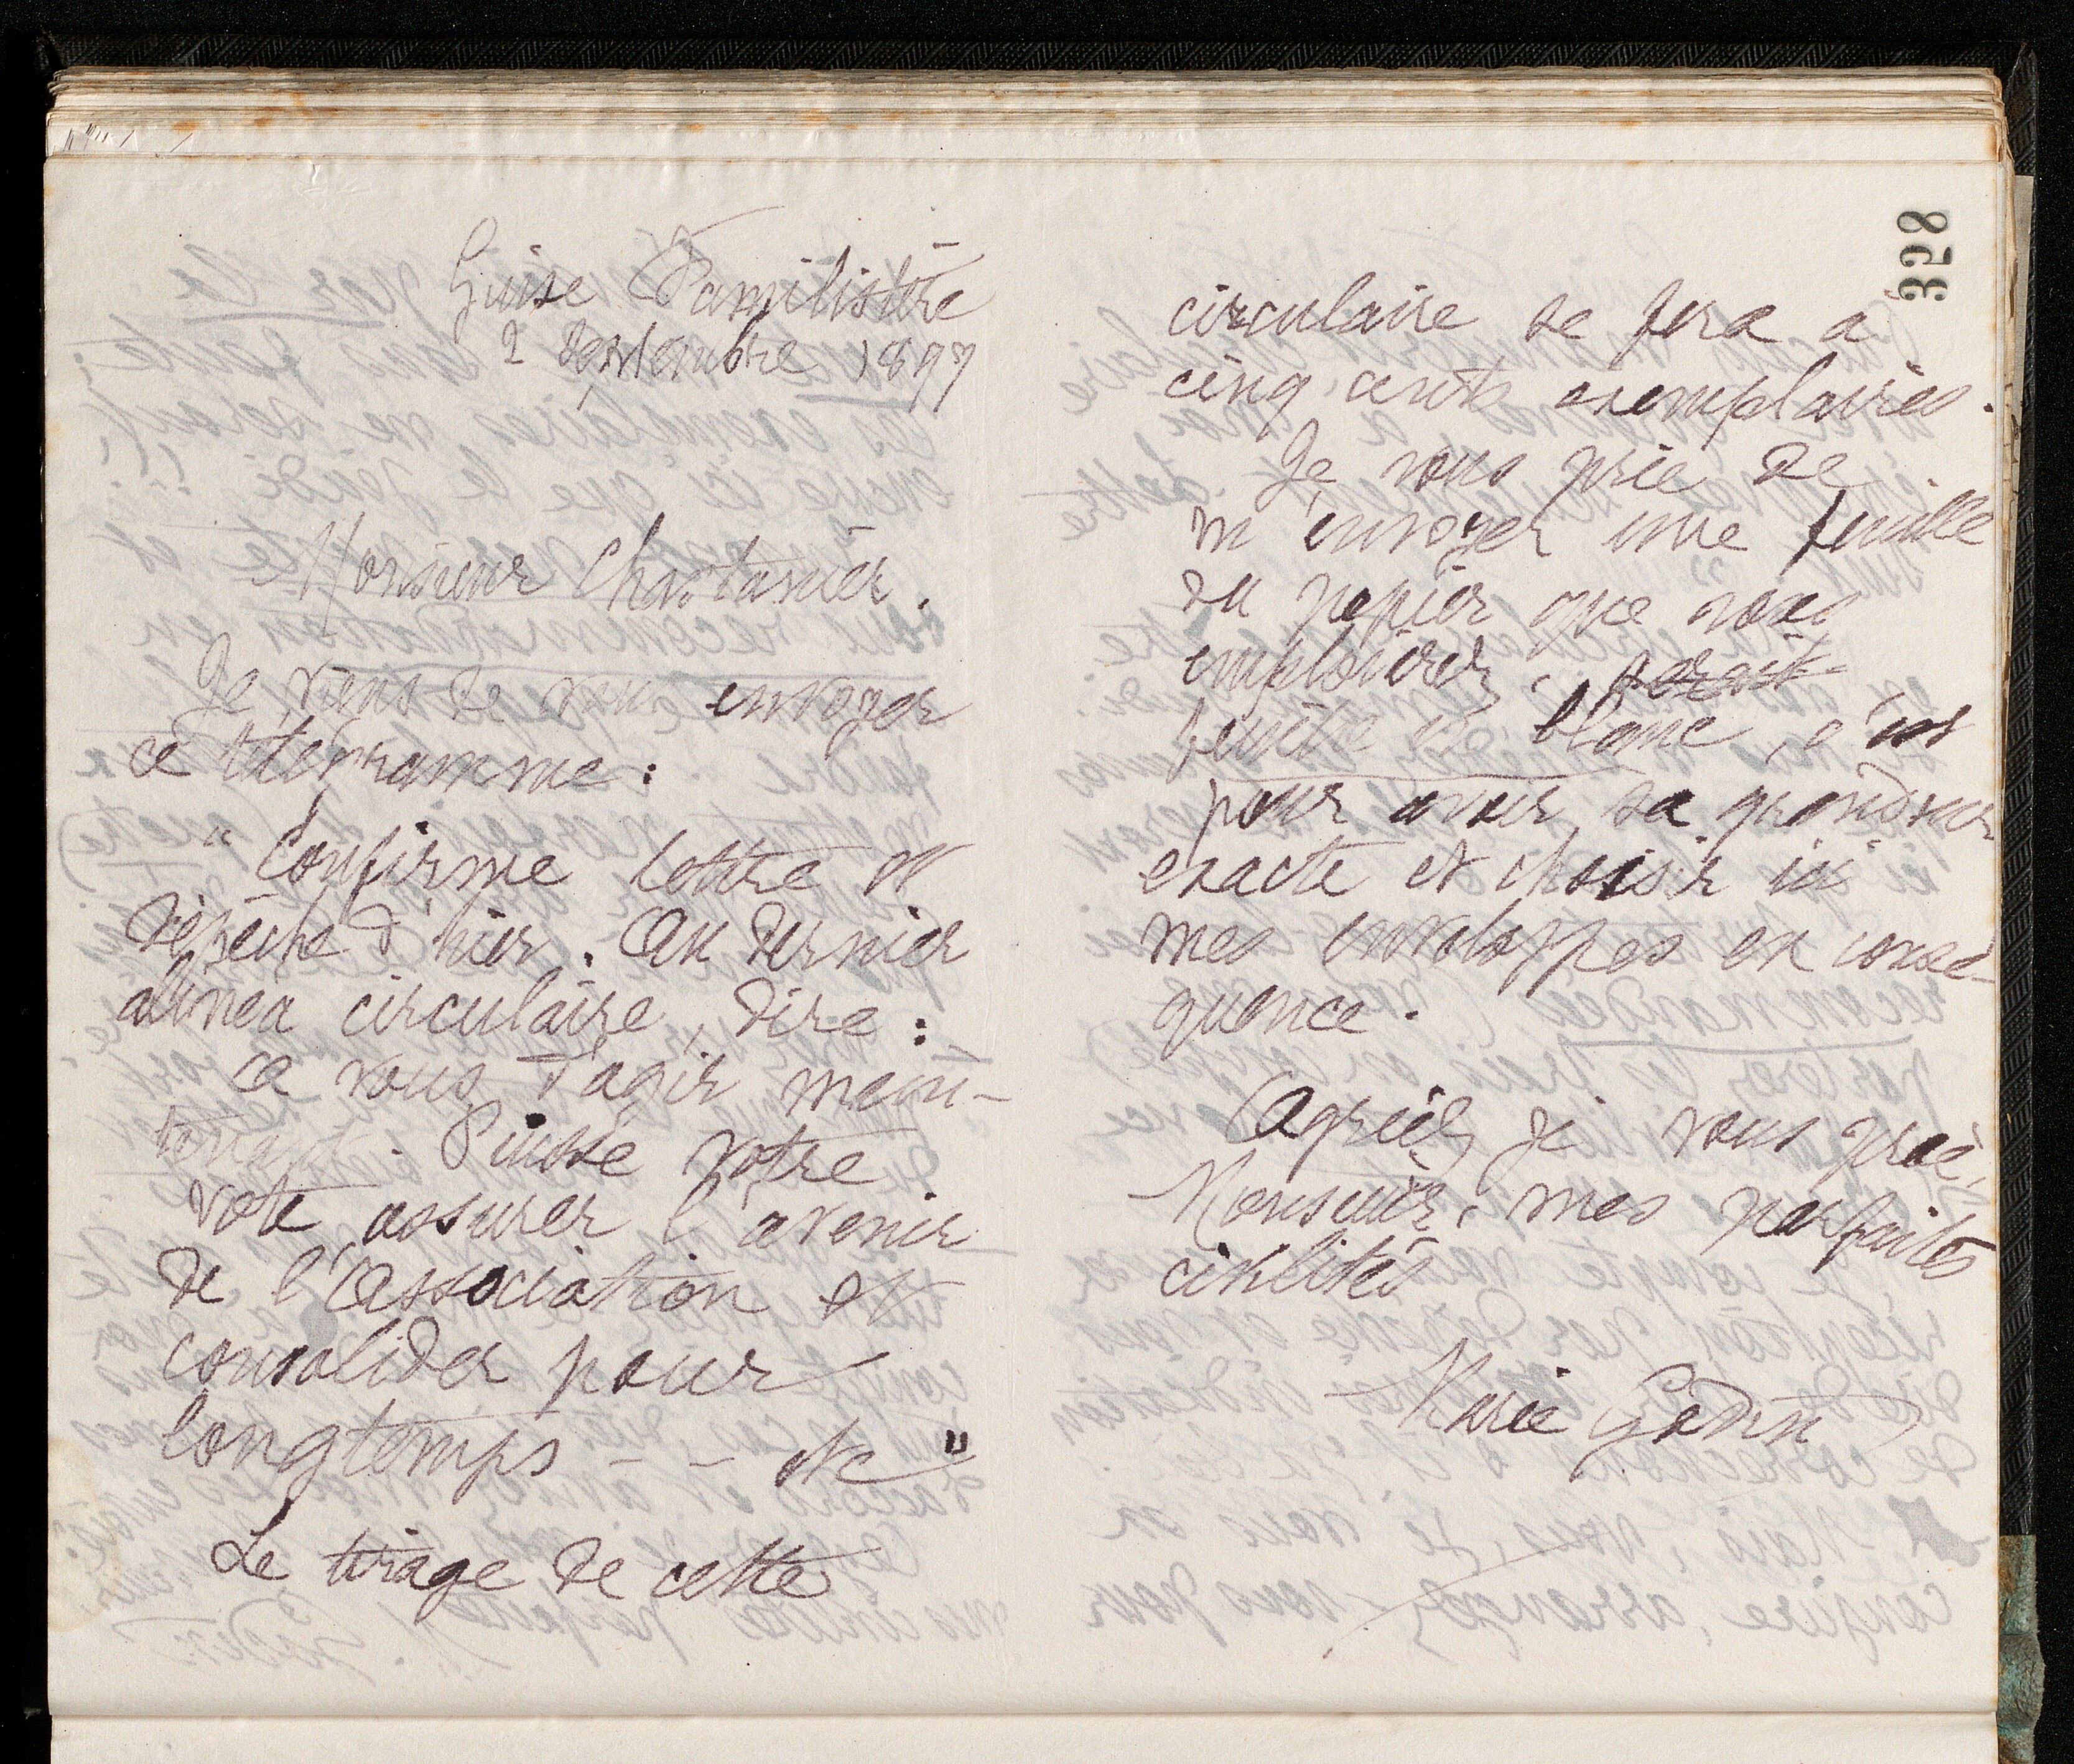 328
Guise Familistère
2 septembre 1897
Monsieur Chastanier.
Je viens de vous envoyer
ce télégramme :
"Confirme lettre et
dépêche d'hier. Au dernier
alinéa circulaire, dire :
à vous d'agir main-
tenant. Puisse votre
vote assurer l'avenir
de l'Association et
consolider pour
longtemps - - etc"
Le tirage de cette
circulaire se fera à
cinq cents exemplaires.
Je vous prie de
m'envoyer une feuille
du papier que vous
emploierez,
feuille en blanc, c'est
pour avoir sa grandeur
exacte et choisir ici
mes enveloppes en consé-
quence.
Agréez, je vous prie,
Monsieur, mes parfaites
civilités
Marie Godin